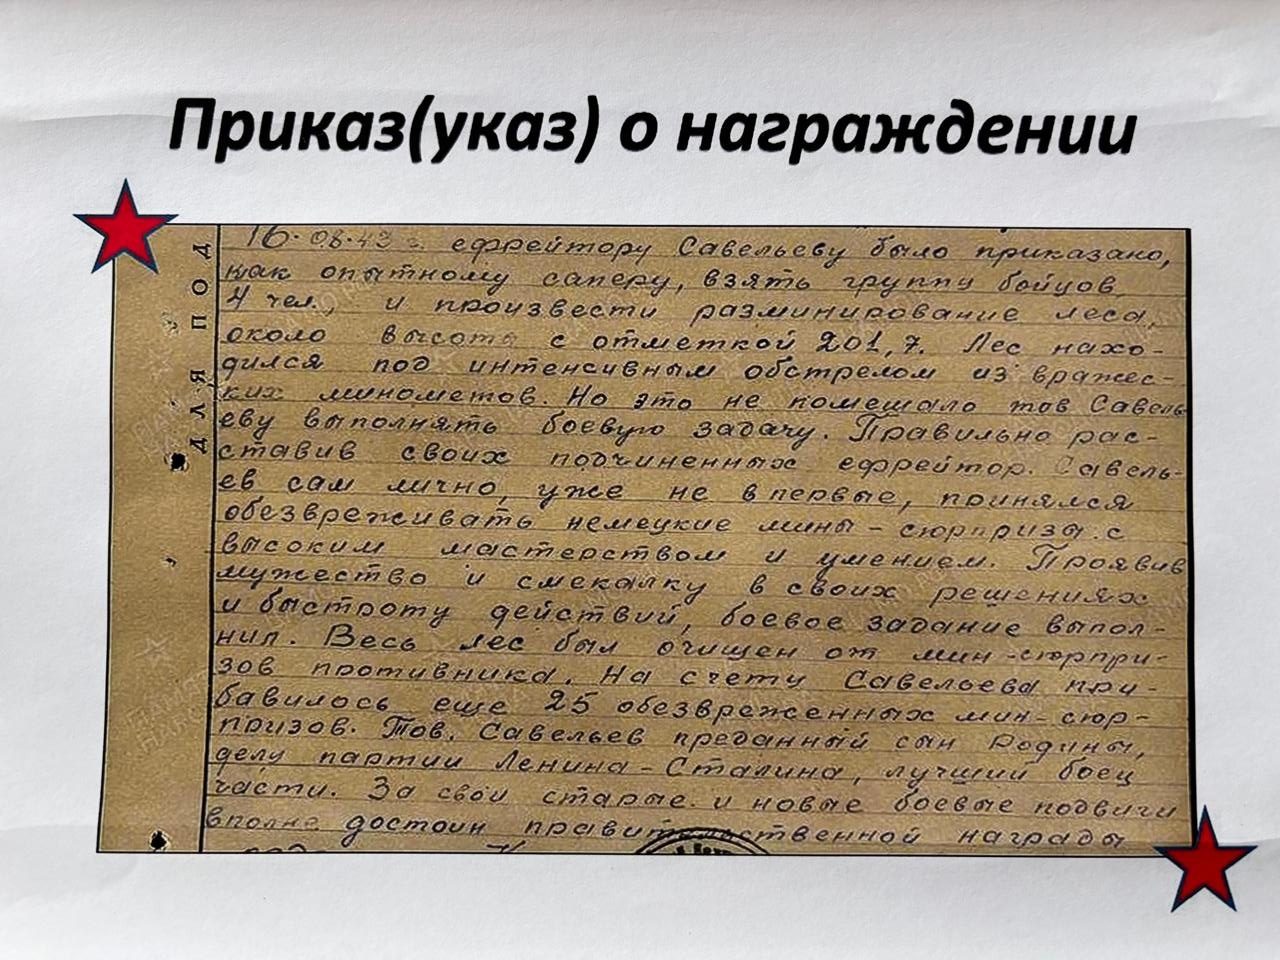 Приказ(указ) о награждении
ДЛЯ ПОД
16.08.43 г. ефрейтору Савельеву было приказано,
как опытному саперу, взять группу бойцов
4 чел., и произвести разминирование леса,
около высоты с отметкой 201,7. Лес нахо-
дился под интенсивным обстрелом из вражес-
ких минометов. Но это не помешало тов Савель-
еву выполнять боевую задачу. Правильно рас-
ставив своих подчиненных ефрейтор. Савель-
ев сам лично, уже не впервые, принялся
обезвреживать немецкие мины-сюрпризы с
высоким мастерством и умением. Проявив
мужество и смекалку в своих решениях
и быстроту действий, боевое задание выпол-
нил. Весь лес был очищен от мин-сюрпри-
зов противника. На счету Савельева при-
бавилось еще 25 обезвреженных мин-сюр-
призов. Тов. Савельев преданный сын Родины,
делу партии Ленина-Сталина, лучший боец
части. За свои старые и новые боевые подвиги
вполне достоин правительственной награды